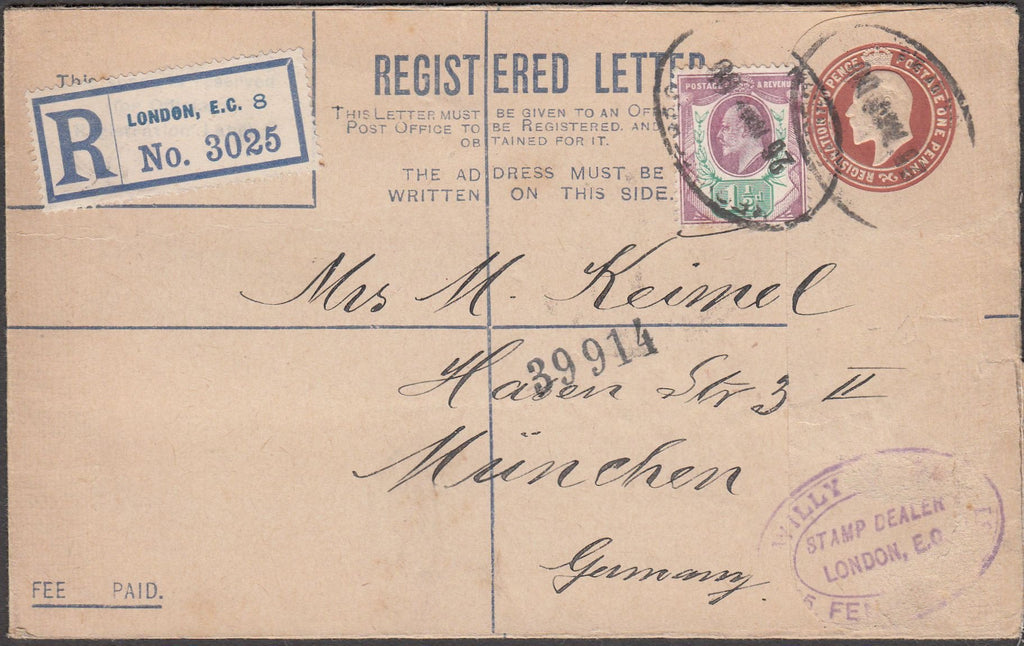 This
R
LONDON, E.C. 8
No. 3025
REGISTERED LETTER
THIS LETTER MUST BE GIVEN TO AN
POST OFFICE TO BE REGISTERED, AND
OBTAINED FOR IT.
THE ADDRESS MUST BE
WRITTEN ON THIS SIDE.
POSTAGE & REVENUE
1½d
REGISTRATION TWO PENCE POSTAGE ONE PENNY
Mrs M. Keimel
39914
Haven Str 3 II
München
Germany
WILLY
STAMP DEALER
LONDON, E.C.
FEE PAID.